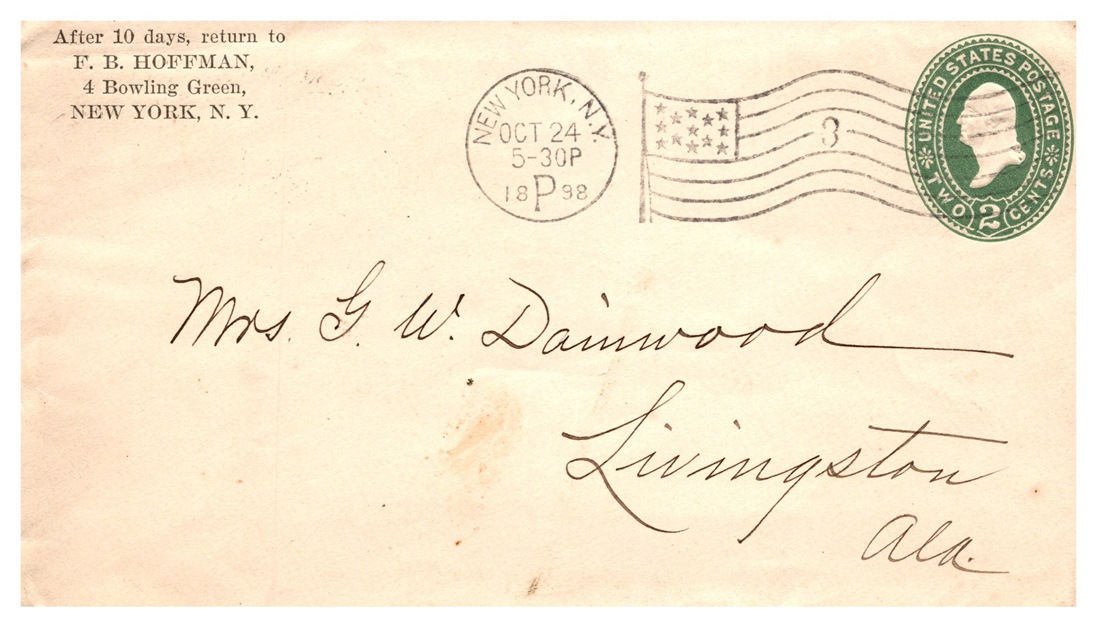 After 10 days, return to
F. B. HOFFMAN,
4 Bowling Green,
NEW YORK, N. Y.
NEW YORK, N.Y.
OCT 24
5-30P
18 P 98
3
UNITED STATES POSTAGE
TWO 2 CENTS
Mrs. G. W. Dainwood
Livingston
Ala.